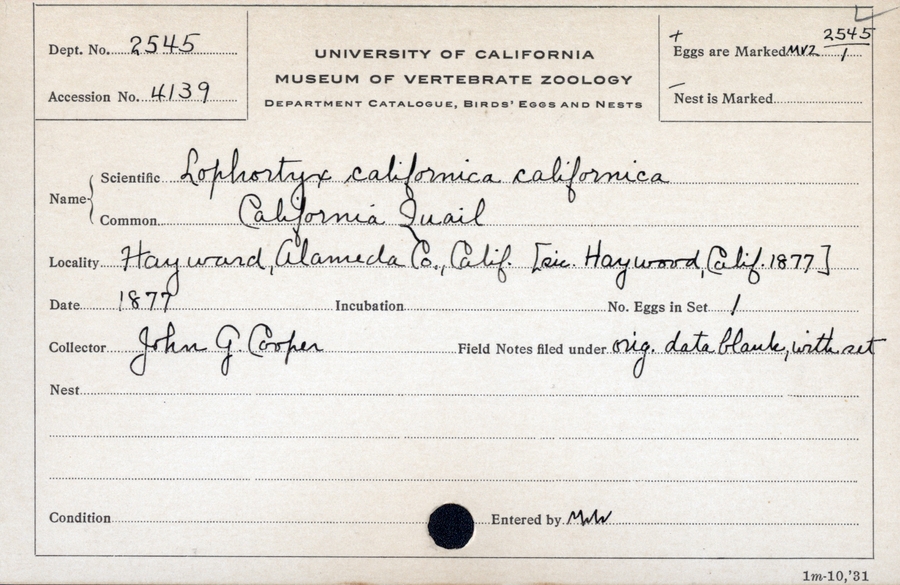 Dept. No. 2545
Accession No. 4139
UNIVERSITY OF CALIFORNIA
MUSEUM OF VERTEBRATE ZOOLOGY
DEPARTMENT CATALOGUE, BIRDS' EGGS AND NESTS
+ Eggs are Marked MVZ 2545/1
– Nest is Marked
Name
Scientific Lophortyx californica californica
Common California Quail
Locality Hayward, Alameda Co., Calif. [sic. Haywood, Calif. 1877]
Date 1877 Incubation No. Eggs in Set 1
Collector John G. Cooper Field Notes filed under orig. data blank, with set
Nest
Condition Entered by
1m-10,'31